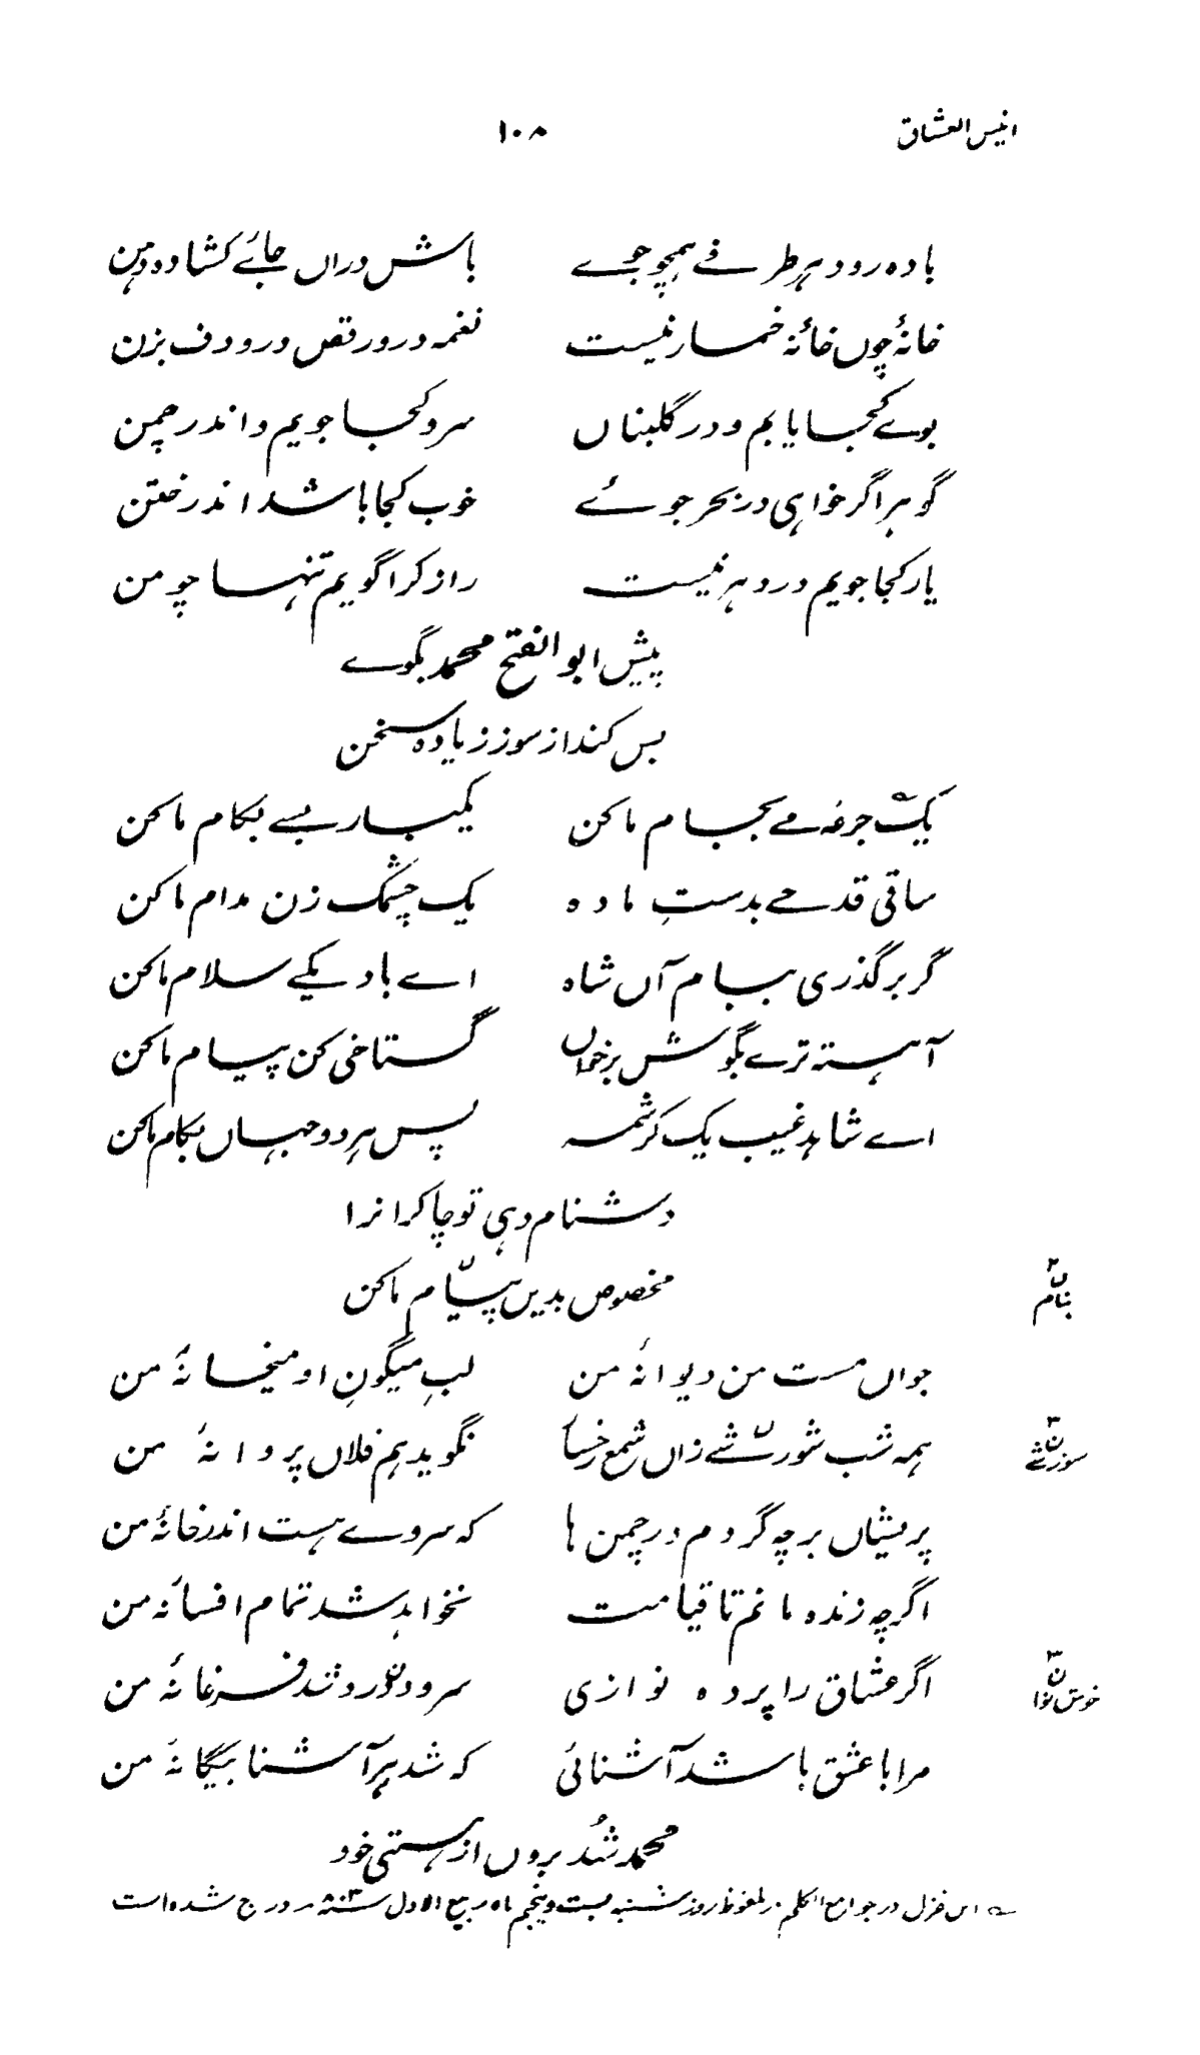 انیس العشاق ۱۰۸
باده رود هر طرفے همچو جوے باش دراں جائے کشاده دهن
خانۂ چوں خانۂ خمار نیست نغمه درو رقص درو دف بزن
بوے کجا یابم و در گلبناں سرو کجا جویم و اندر چمن
گوهر اگر خواهی در بحر جوئے خوب کجا باشد اندر ختن
یار کجا جویم در دهر نیست راز کرا گویم تنها چو من
پیش ابو الفتح محمد بگوے
بس کند از سوز زیاده سخن
یک جرعه مے بجام ما کن یکبار بسے بکام ما کن
ساقی قدحے بدستِ ما ده یک چشمک زن مدام ما کن
گر برگذری ببام آں شاه اے باد یکے سلام ما کن
آهسته ترے بگوش برخواں گستاخی کن پیام ما کن
اے شاهد غیب یک کرشمه پس هر دو جهاں بکام ما کن
دشنام دهی تو چاکرانرا
مخصوص بدیں پیام ما کن
بنام
جواں مست من دیوانۂ من لبِ میگونِ او میخانۂ من
همه شب شورشے زاں شمع رخسا نگوید هم فلاں پروانۂ من
سوزشے
پریشاں بر چه گردم در چمن ها که سروے هست اندر خانۂ من
اگرچه زنده مانم تا قیامت نخواهد شد تمام افسانۂ من
اگر عشاق را پرده نوازی سرود نو روند فرغانۂ من
خوش نوا
مرا با عشق باشد آشنائی که شد هر آشنا بیگانۂ من
محمد شد بروں از هستی خود
ایں غزل در جوامع الکلم در ملفوظ روز شنبه بست و پنجم ماه ربیع الاول سنه ۸۰۳ درج شده است